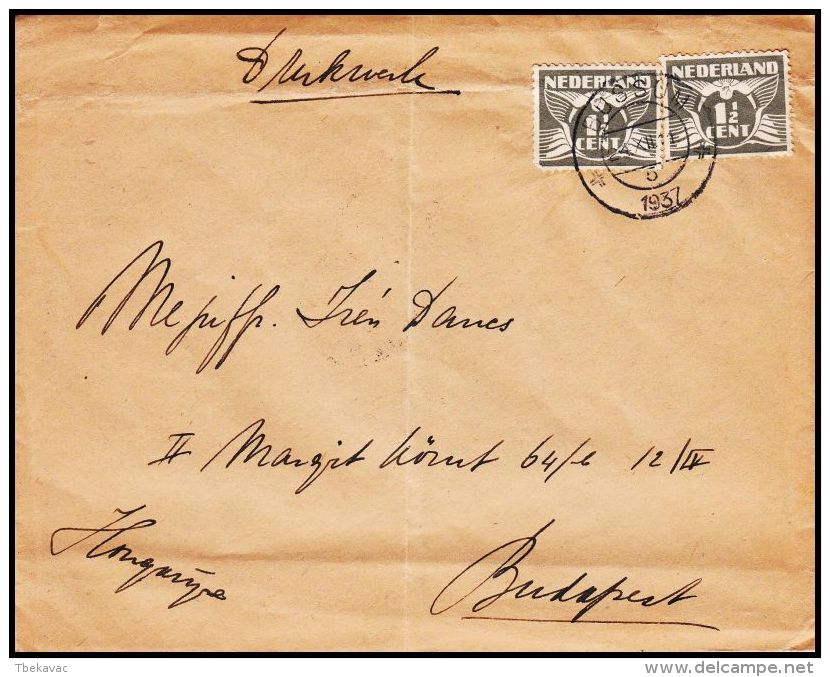 Drukwerk
NEDERLAND
1½
CENT
NEDERLAND
1½
CENT
1937
Mejuffr. Irén Danes
II Margit körut 64/e 12/IV
Hongarije
Budapest
Tbekavac
delcampe.net